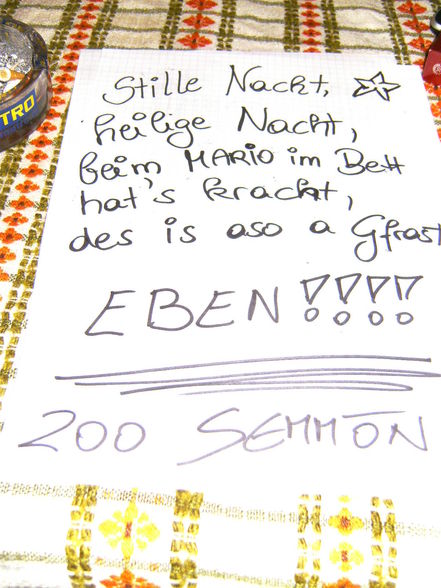 Stille Nacht, ☆
heilige Nacht,
beim MARIO im Bett
hat's kracht,
des is aso a Gfrast
EBEN !!!!
200 SEMMÖN
TRO